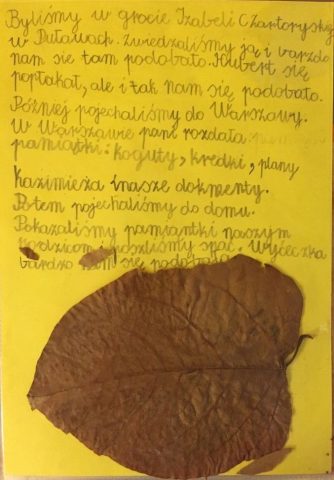 Byliśmy w grocie Izabeli Czartoryskiej
w Puławach. Zwiedzaliśmy ją i bardzo
nam się tam podobało. Hubert się
popłakał, ale i tak nam się podobało.
Później pojechaliśmy do Warszawy.
W Warszawie pani rozdała
pamiątki: koguty, kredki, plany
Kazimieża i nasze dokmenty.
Potem pojechaliśmy do domu.
Pokazaliśmy pamiantki naszym
rodzicom i poszliśmy spać. Wycieczka
bardzo nam się podobała.